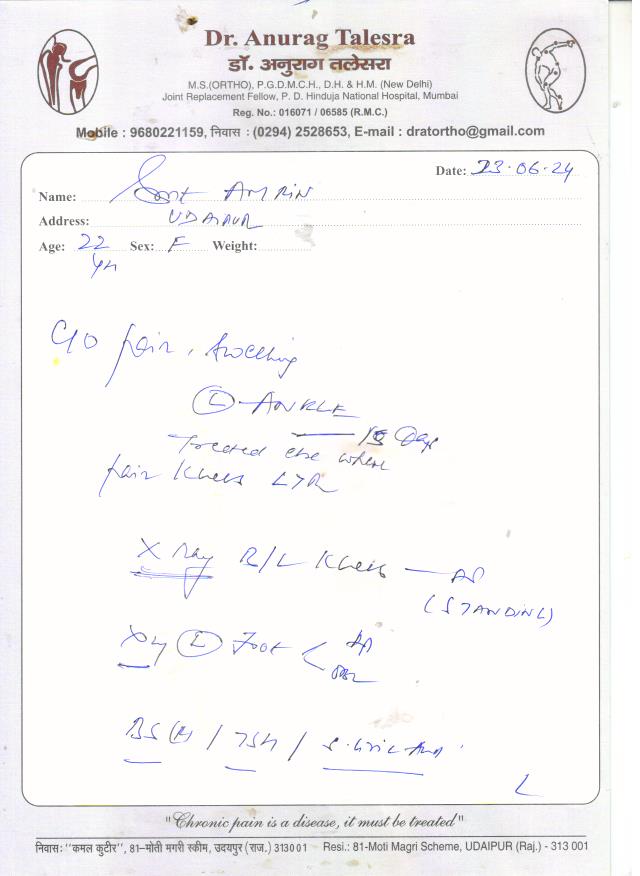 Dr. Anurag Talesra
डॉ. अनुराग तलेसरा
M.S.(ORTHO), P.G.D.M.C.H., D.H. & H.M. (New Delhi)
Joint Replacement Fellow, P. D. Hinduja National Hospital, Mumbai
Reg. No.: 016071 / 06585 (R.M.C.)
Mobile : 9680221159, निवास : (0294) 2528653, E-mail : dratortho@gmail.com
Date: 23.06.24
Name: Smt AMRIN
Address: UDAIPUR
Age: 22 yrs Sex: F Weight:
C/O pain, swelling
(L) ANKLE
Days
Treated else where
pain knees L>R
X Ray R/L Knees — AP
(STANDING)
(L) Foot < AP
OBL
/ TSH / S. Uric Acid
"Chronic pain is a disease, it must be treated"
निवास: "कमल कुटीर", 81–मोती मगरी स्कीम, उदयपुर (राज.) 313001 Resi.: 81-Moti Magri Scheme, UDAIPUR (Raj.) - 313 001